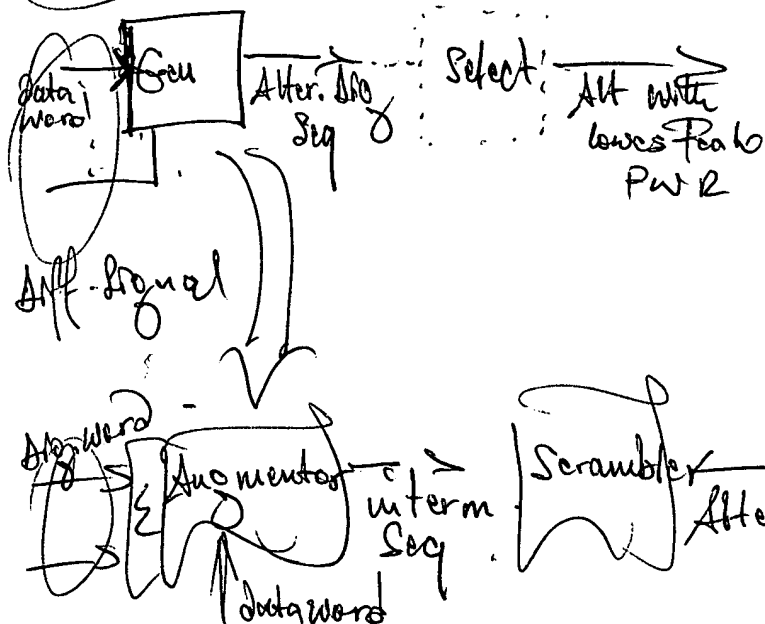 data word
Gen
Alter. Dig Seq
Select
Alt with lowes Peak PWR
Diff. Signal
Dig. word
Augmentor
interm Seq
Scrambler
Alte
data word